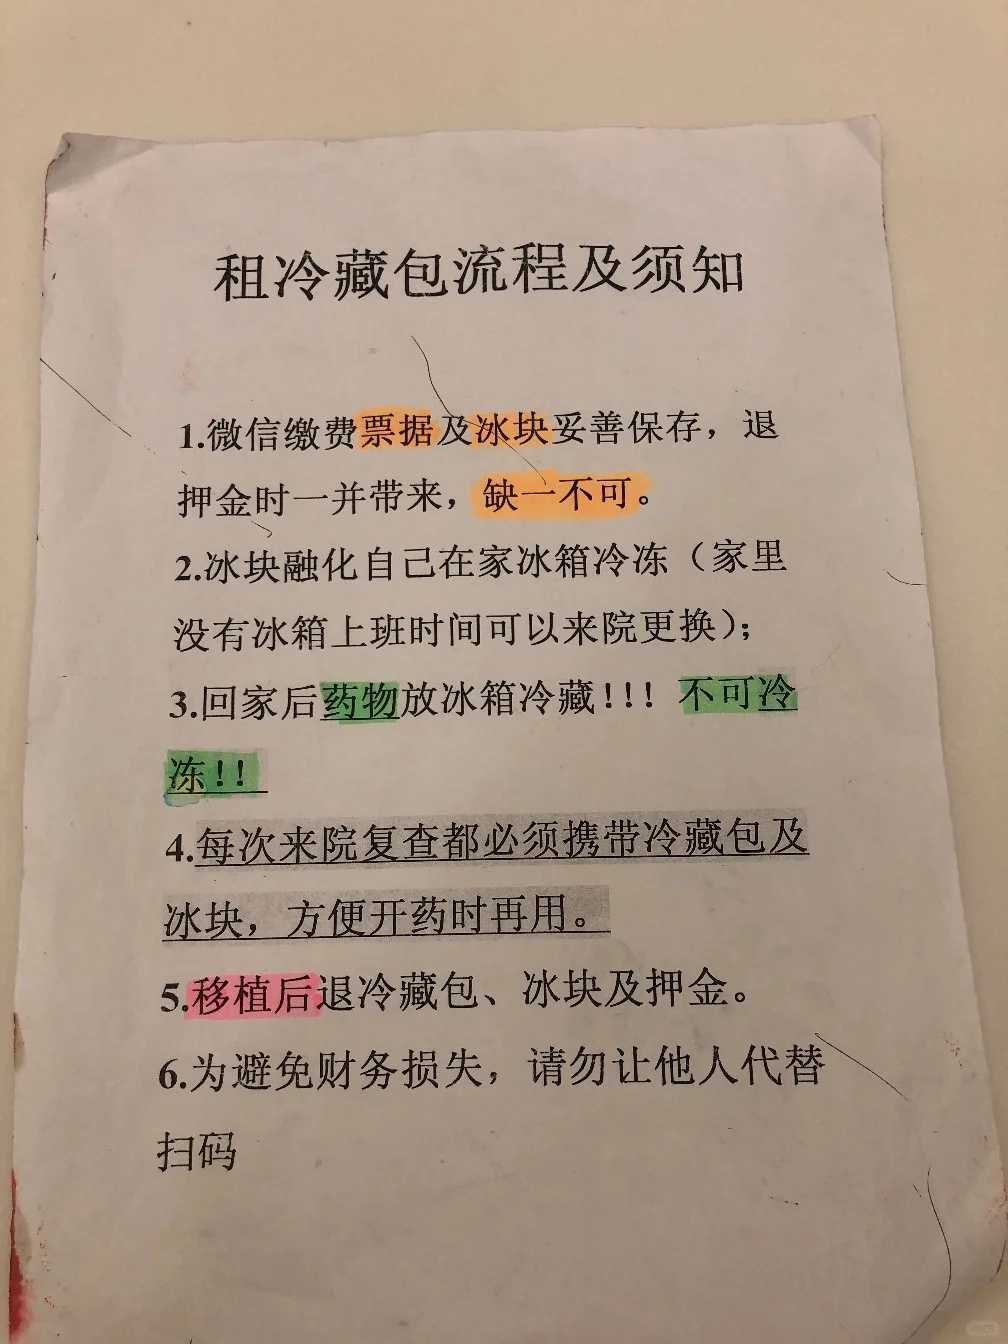 租冷藏包流程及须知
1.微信缴费票据及冰块妥善保存，退
押金时一并带来，缺一不可。
2.冰块融化自己在家冰箱冷冻（家里
没有冰箱上班时间可以来院更换）；
3.回家后药物放冰箱冷藏！！！不可冷
冻！！
4.每次来院复查都必须携带冷藏包及
冰块，方便开药时再用。
5.移植后退冷藏包、冰块及押金。
6.为避免财务损失，请勿让他人代替
扫码